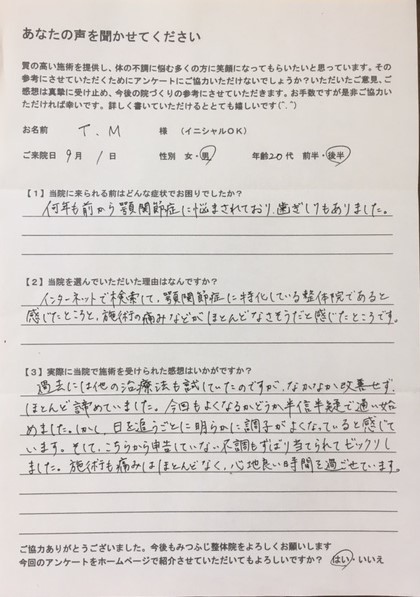 あなたの声を聞かせてください
質の高い施術を提供し、体の不調に悩む多くの方に笑顔になってもらいたいと思っています。その
参考にさせていただくためにアンケートにご協力いただけないでしょうか？いただいたご意見、ご
感想は真摯に受け止め、今後の院づくりの参考にさせていただきます。お手数ですが是非ご協力い
ただければ幸いです。詳しく書いていただけるととても嬉しいです(^_^)
お名前 T.M 様 (イニシャルOK)
ご来院日 9月 1日 性別 女・男 年齢20代 前半・後半
【1】当院に来られる前はどんな症状でお困りでしたか？
何年も前から顎関節症に悩まされており、歯ぎしりもありました。
【2】当院を選んでいただいた理由はなんですか？
インターネットで検索して、顎関節症に特化している整体院であると
感じたところと、施術の痛みなどがほとんどなさそうだと感じたところです。
【3】実際に当院で施術を受けられた感想はいかがですか？
過去には他の治療法も試していたのですが、なかなか改善せず、
ほとんど諦めていました。今回もよくなるかどうか半信半疑で通い始
めました。しかし、日を追うごとに明らかに調子がよくなっていると感じて
います。そして、こちらから申告していない不調もずばり当てられてビックリし
ました。施術も痛みはほとんどなく、心地良い時間を過ごせています。
ご協力ありがとうございました。今後もみつふじ整体院をよろしくお願いします
今回のアンケートをホームページで紹介させていただいてもよろしいですか？ はい・いいえ